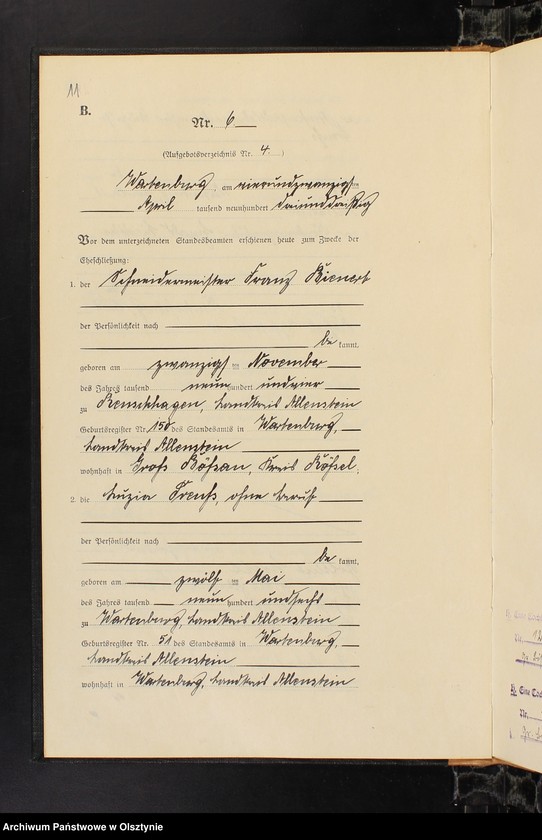 11
B.
Nr. 6
(Aufgebotsverzeichnis Nr. 4.)
Wartenburg, am vierundzwanzigsten
April tausend neunhundert dreiunddreißig
Vor dem unterzeichneten Standesbeamten erschienen heute zum Zwecke der
Eheschließung:
1. der Schneidermeister Franz Bienert
der Persönlichkeit nach
be kannt,
geboren am zwanzigsten November
des Jahres tausend neun hundert undvier
zu Reuschhagen, Landkreis Allenstein
Geburtsregister Nr. 150 des Standesamts in Wartenburg,
Landkreis Allenstein
wohnhaft in Groß Bößau, Kreis Rößel;
2. die Luzia Preuß, ohne Beruf
der Persönlichkeit nach
be kannt,
geboren am zwölften Mai
des Jahres tausend neun hundert undsechs
zu Wartenburg, Landkreis Allenstein
Geburtsregister Nr. 51 des Standesamts in Wartenburg,
Landkreis Allenstein
wohnhaft in Wartenburg, Landkreis Allenstein
Eine Toch
Nr.
Archiwum Państwowe w Olsztynie